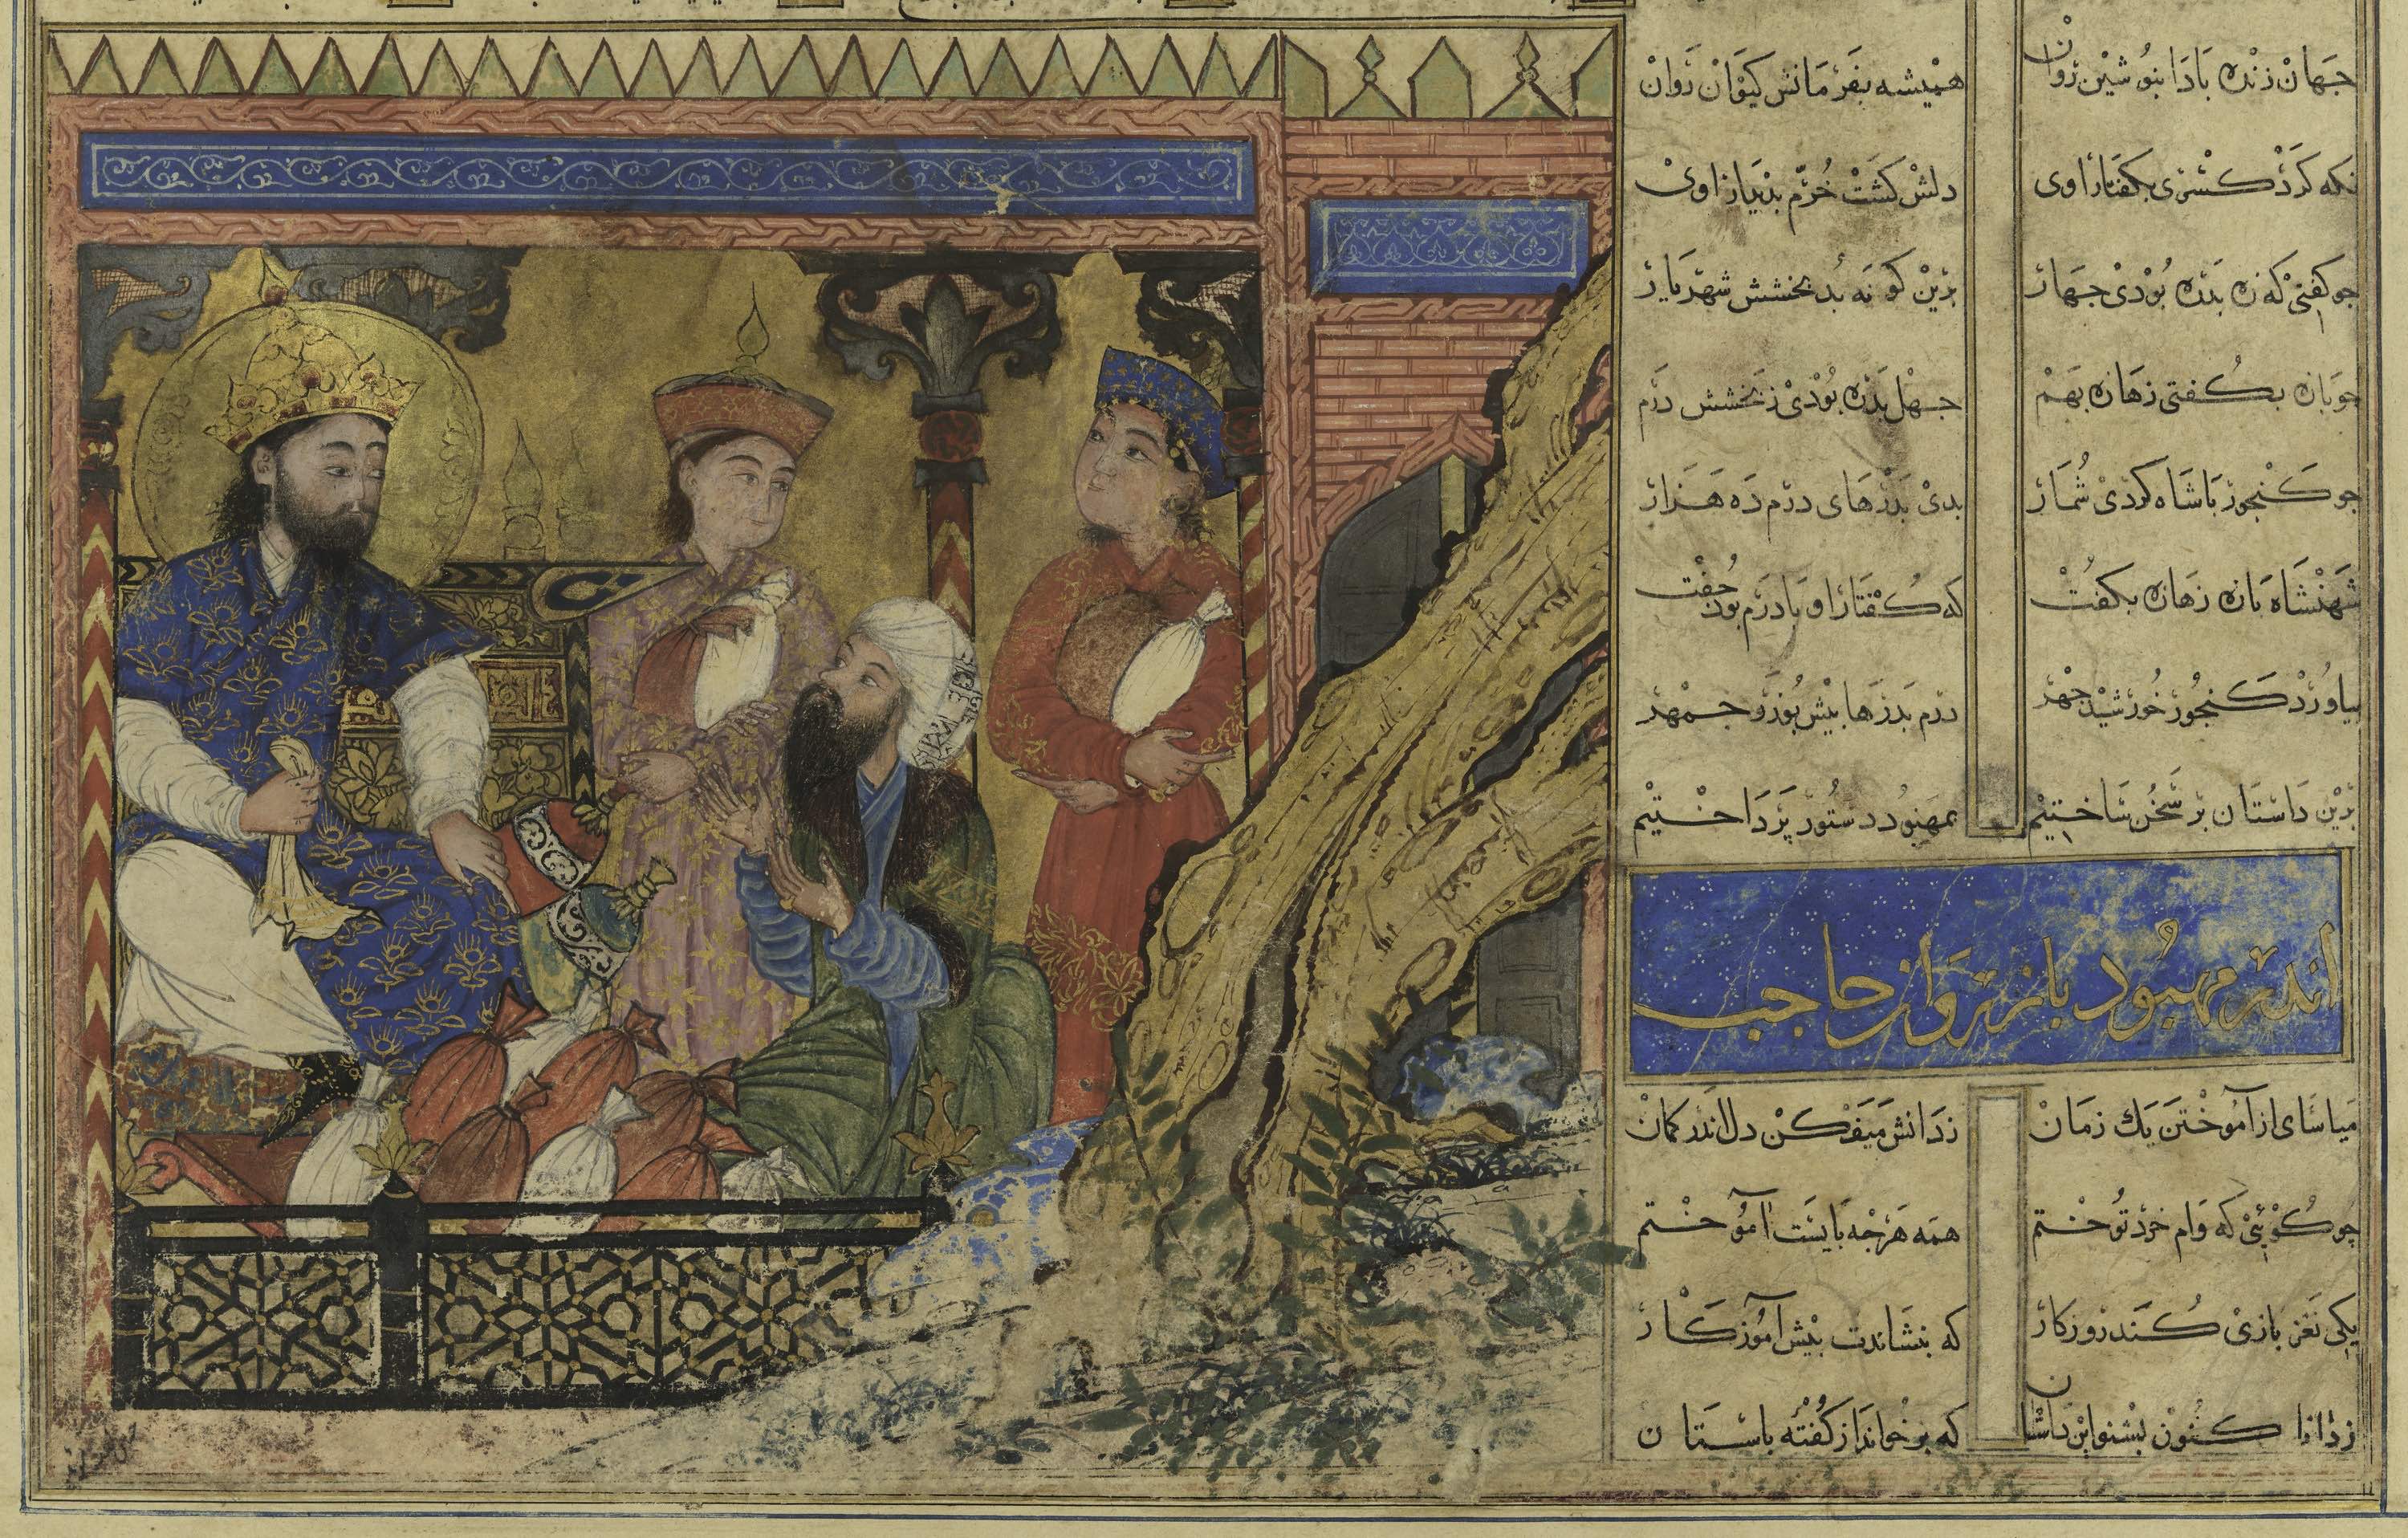 جهان زنده بادا بنوشین روان همیشه بفرمانش کیوان روان
نکه کرد کسری بکفتار اوی دلش کشت خرّم بدیدار اوی
جو کفتی که زه بدره بودی جهار برین کونه بد بخشش شهریار
جو با زه بکفتی زهازه بهم جهل بدره بودی ز بخشش درم
جو کنجور با شاه کردی شمار بدی بدرهای درم ده هزار
شهنشاه با زه زهازه بکفت که کفتار او با درم بود جفت
بیاورد کنجور خورشید جهر درم بدرها بیش بوزرجمهر
برین داستان بر سخن ساختیم بمهبود دستور پرداختیم
اندر مهبود با زروان حاجب
میاسای از آموختن یک زمان ز دانش میفکن دل اندر کمان
چو کویئ که وام خرد توختم همه هرجه بایست آموختم
یکی نغز بازی کند روزکار که بنشاندت بیش آموزکار
ز دانا کنون بشنو این داستان که بر خواند از کفته باستان